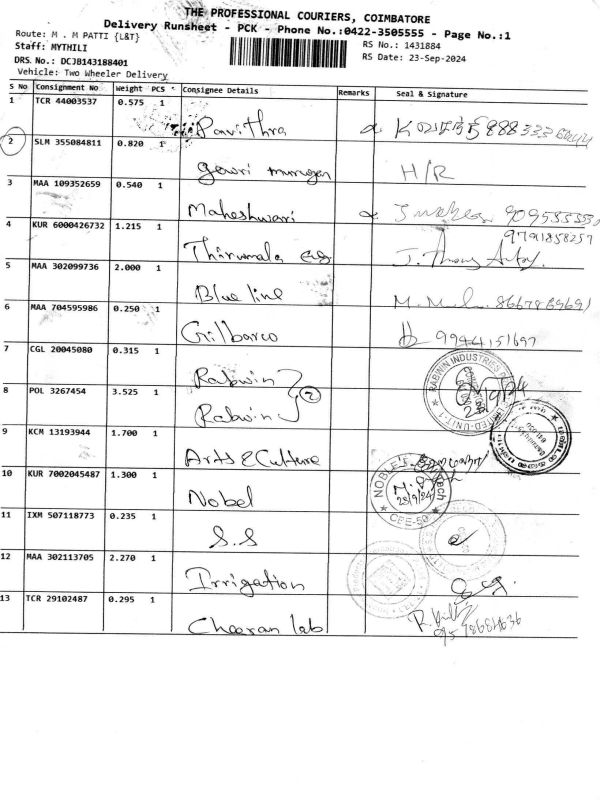 THE PROFESSIONAL COURIERS, COIMBATORE
Delivery Runsheet - PCK - Phone No.:0422-3505555 - Page No.:1
Route: M . M PATTI {L&T}
RS No.: 1431884
Staff: MYTHILI
RS Date: 23-Sep-2024
DRS. No.: DCJB143188401
Vehicle: Two Wheeler Delivery
S No Consignment No Weight PCS Consignee Details Remarks Seal & Signature
1 TCR 44003537 0.575 1 Pavithra
2 SLM 355084811 0.820 1 gowri murugan H/R
3 MAA 109352659 0.540 1 Maheshwari
9791858257
4 KUR 6000426732 1.215 1 Thirumala
5 MAA 302099736 2.000 1 Blue line
6 MAA 704595986 0.250 1 Gilbarco 9944151697
7 CGL 20045080 0.315 1 Rabwin
8 POL 3267454 3.525 1 Rabwin 2
9 KCM 13193944 1.700 1 Arts & Culture
10 KUR 7002045487 1.300 1 Nobel
11 IXM 507118773 0.235 1 S.S
12 MAA 302113705 2.270 1 Irrigation
13 TCR 29102487 0.295 1 Cheeran lab